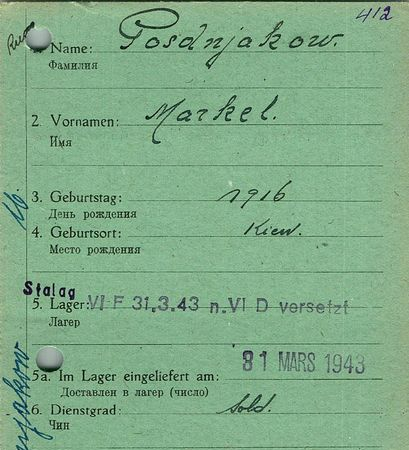 412
Russ
1. Name: Posdnjakow.
Фамилия
2. Vornamen: Markel.
Имя
3. Geburtstag: 1916
День рождения
4. Geburtsort: Kiew.
Место рождения
Stalag
5. Lager: VI F 31.3.43 n. VI D versetzt
Лагерь
31 MARS 1943
5a. Im Lager eingeliefert am:
Доставлен в лагерь (число)
6. Dienstgrad: Sold.
Чин